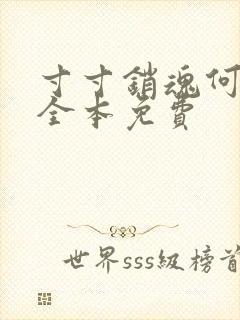 寸寸銷魂何
全本免費
世界sss級榜首